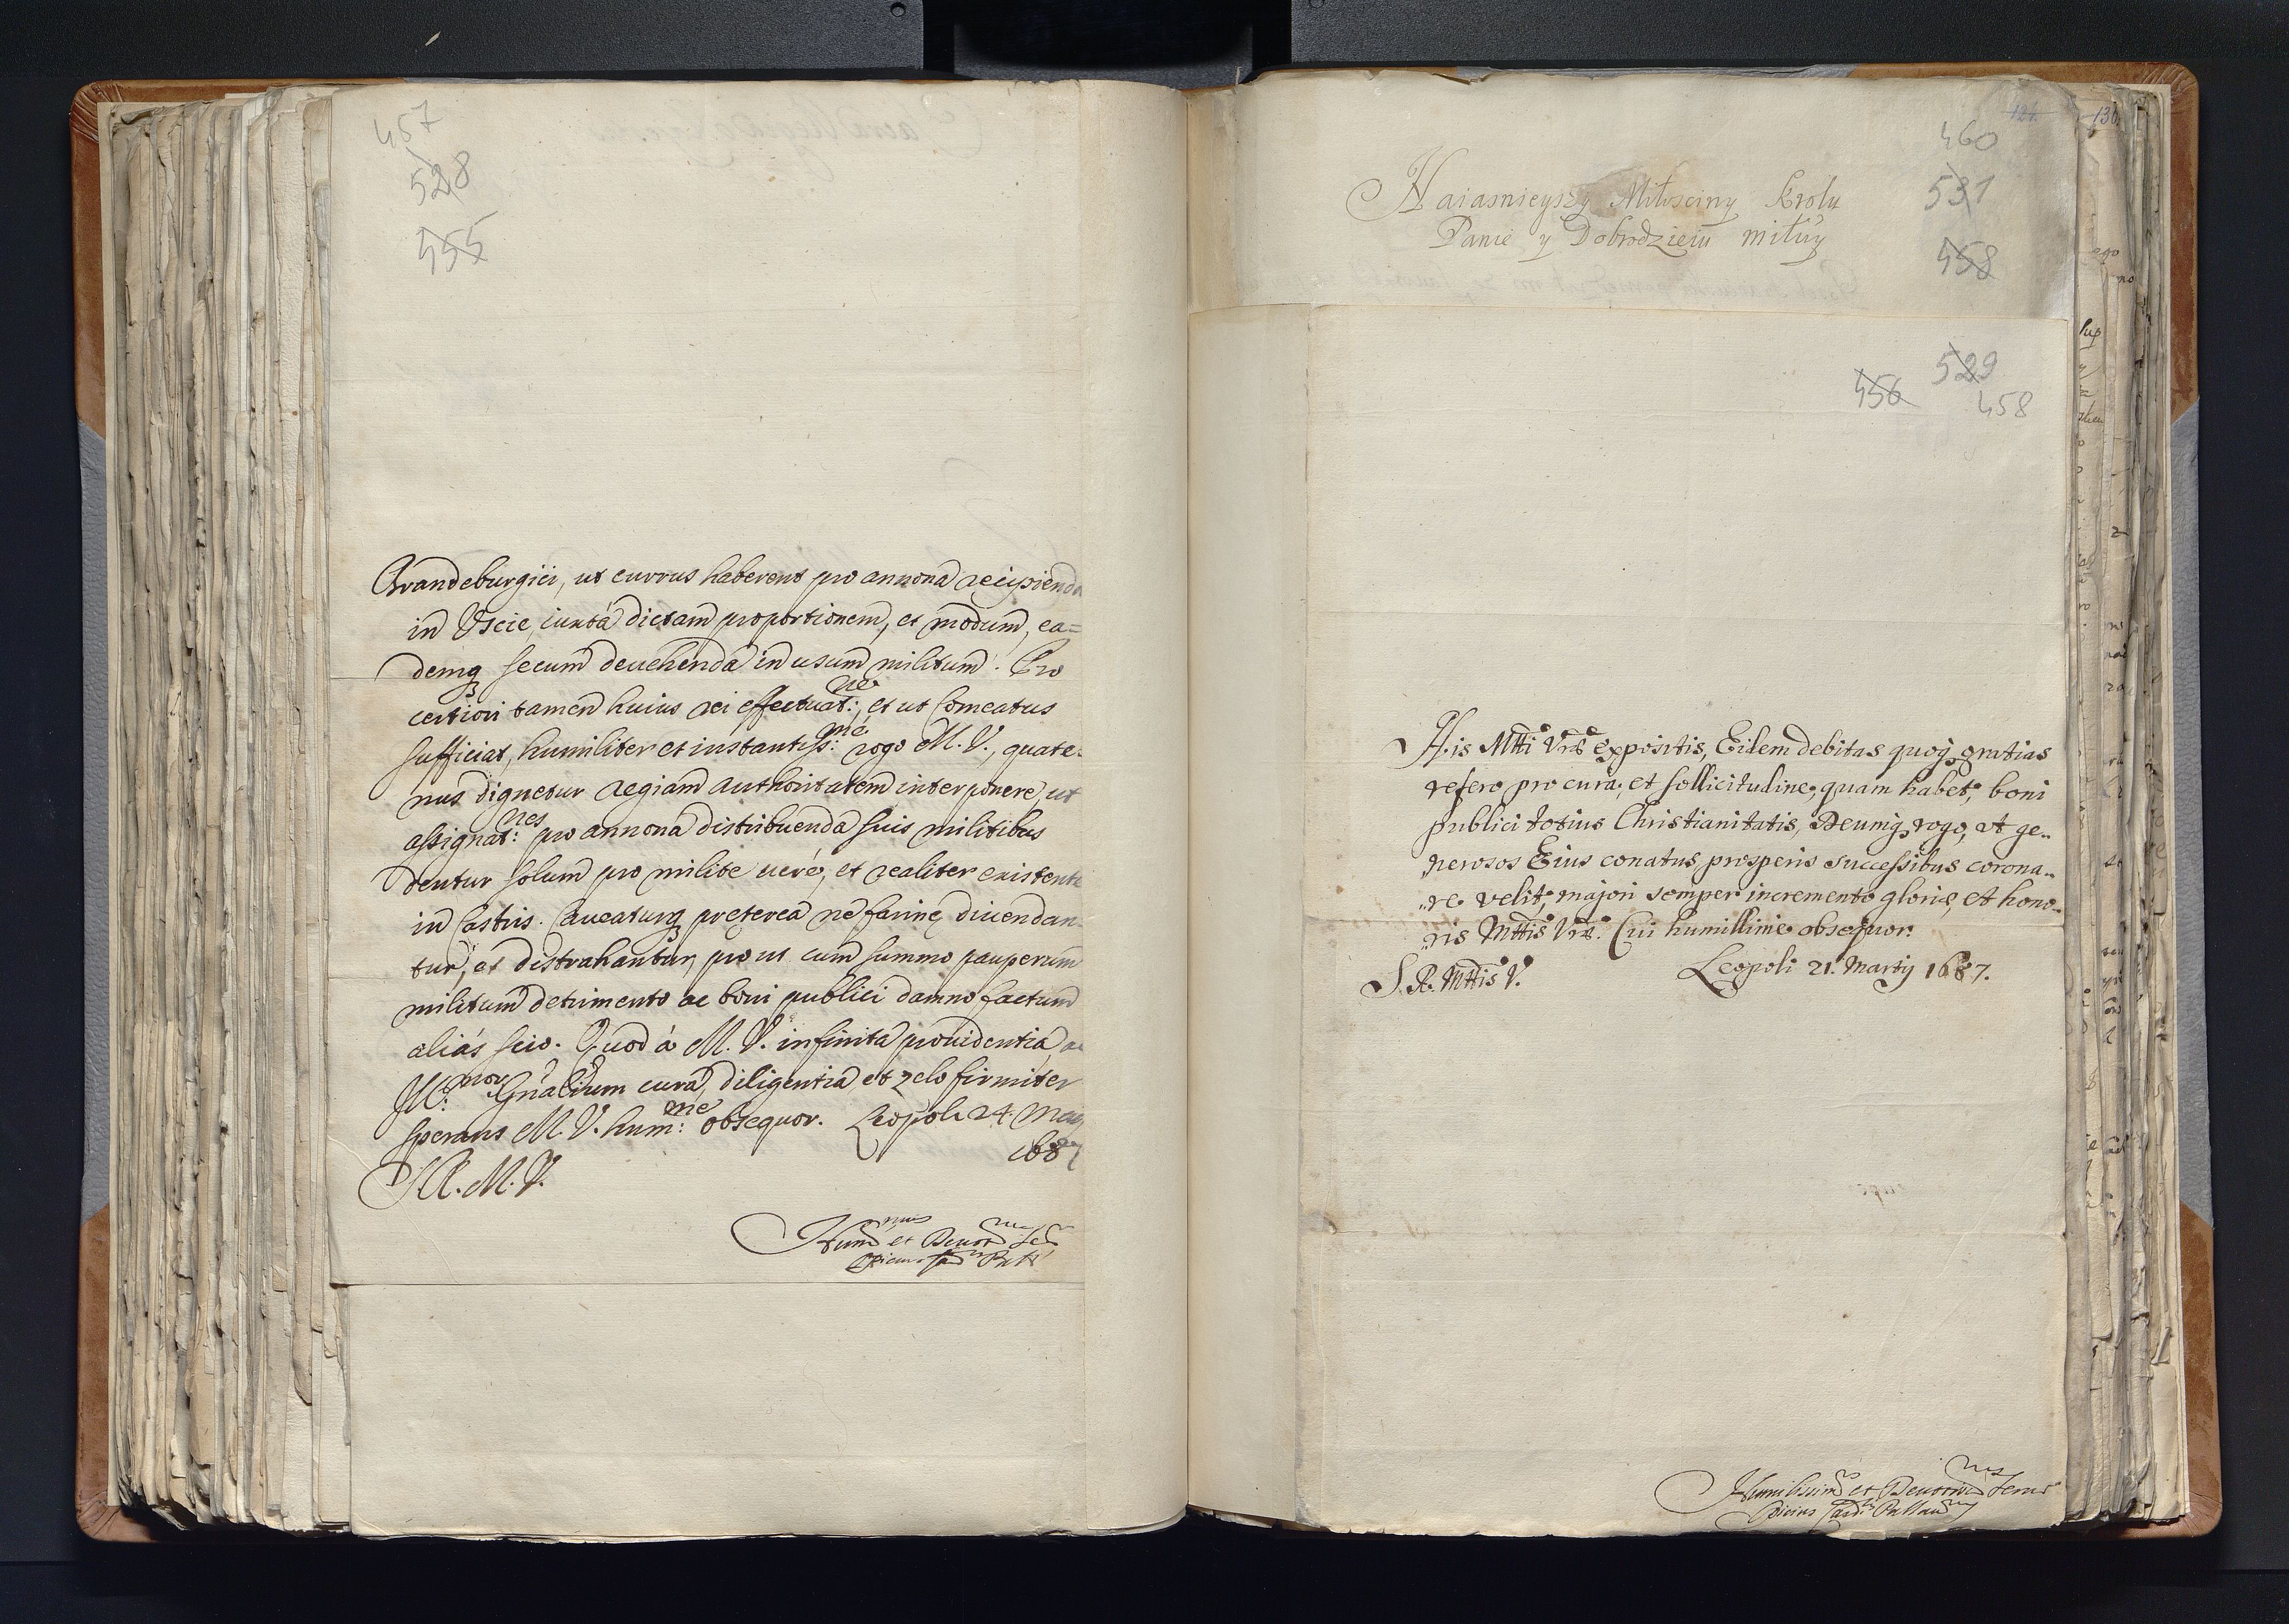 457
528
455
Brandeburgici, ut currus haberent pro annona recipienda
in Uscie, iuxta dictam proportionem, et modum, ea=
demq secum devehenda in usum militum. Pro
certiori tamen huius rei effectuat:ne, et ut Comeatus
sufficiat, humiliter et instantiss:me rogo M. V., quate=
nus dignetur regiam authoritatem interponere, ut
assignat:nes pro annona distribuenda suis militibus
dentur solum pro milite verè, et realiter existente
in Castris. Caveaturq pręterea ne farinę divendan
tur, et distrahantur, prout cum summo pauperum
militum detrimento ac boni publici damno factum
aliás scio. Quod à M. V. infinita providentia, ac
Ill:mor Gnalium cura, diligentia, et zelo firmiter
sperans M. V. hum:me obsequor. Leopoli 24. Maij
1687
S. R. M. V.
Hummus et Devotmus Ser
Opicius Card Pall
124.
130
460
531
458
Naiasnieyszy Miłosciwy Krolu
Panie y Dobrodzieiu miłwy
529
456
458
His Mtti Vræ expositis, Eidem debitas quoq gratias
refero pro cura, et sollicitudine, quam habet, boni
publici totius Christianitatis, Deumq rogo, ut ge..
nerosos Eius conatus prosperis successibus corona..
..re velit, majori semper incremento glorię, et hono..
ris Mttis Vræ. Cui humillime obsequor.
Leopoli 21. Martij 1687.
S. R. Mttis V.
Humilissimus et Devotmus Servus
Opicius Card. Pallavus